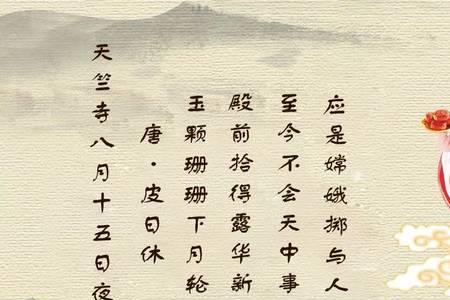 天竺寺八月十五日夜
唐·皮日休
玉颗珊珊下月轮
殿前拾得露华新
至今不会天中事
应是嫦娥掷与人